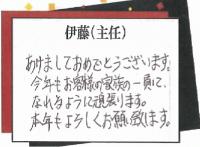 伊藤(主任)
あけましておめでとうございます。
今年もお客様の家族の一員に、
なれるように頑張ります。
本年もよろしくお願い致します。